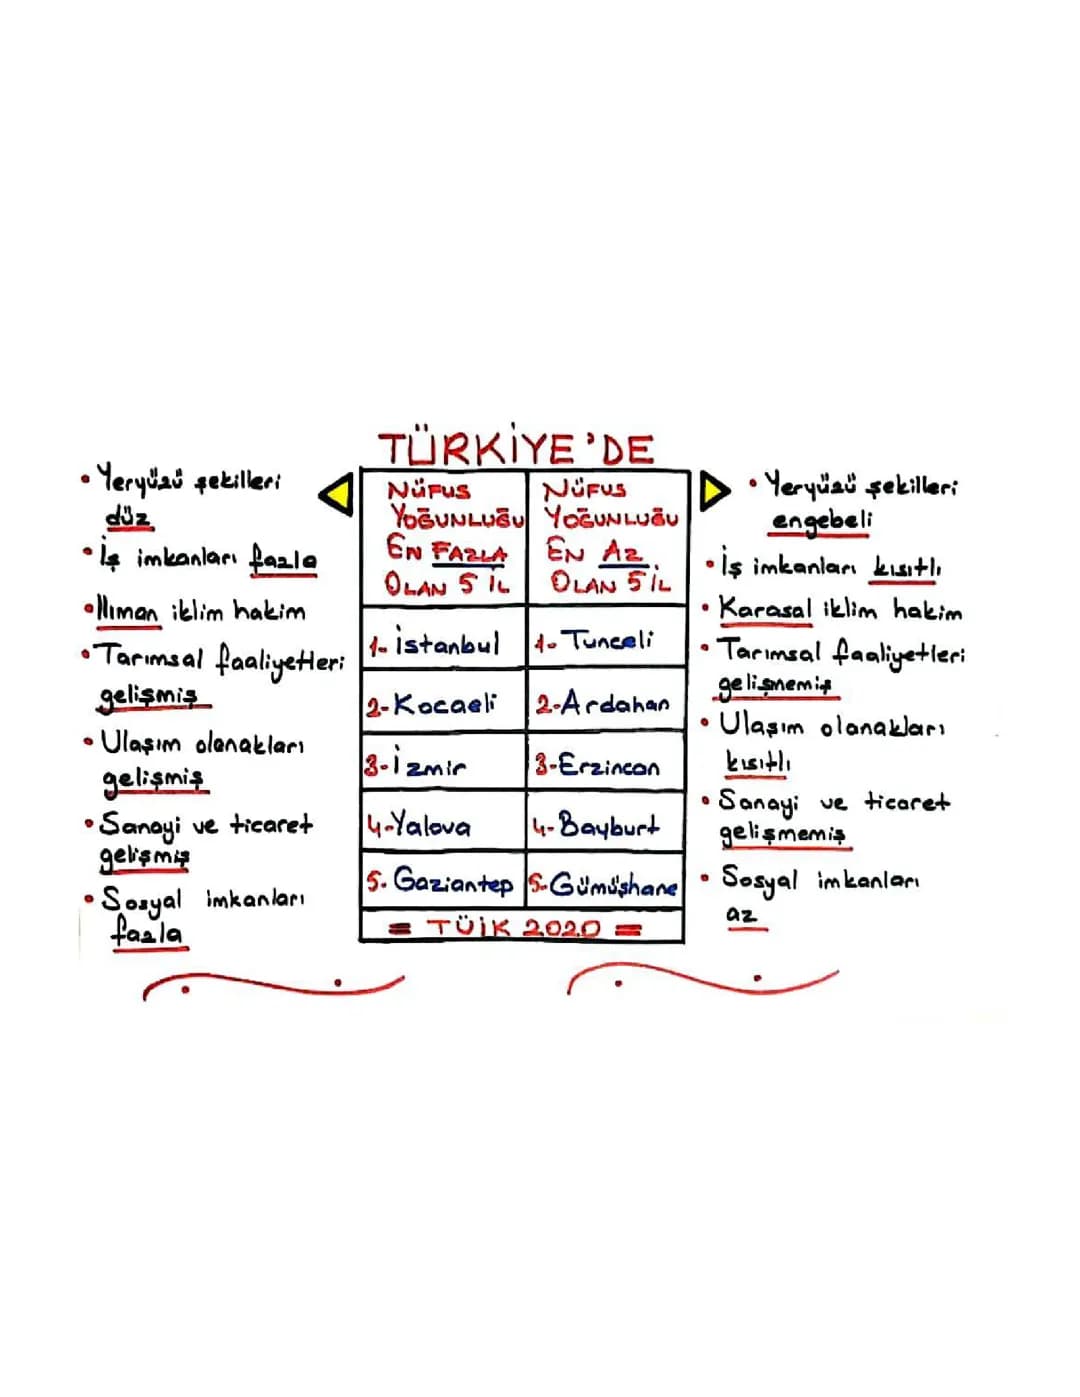 TÜRKİYE'DE
• Yeryüzü şekilleri
düz
• İş imkanları fazla
• Ilıman iklim hakim
• Tarımsal faaliyetleri
gelişmiş
• Ulaşım olanakları
gelişmiş
• Sanayi ve ticaret
gelişmiş
• Sosyal imkanları
fazla
NÜFUS
YOĞUNLUĞU
EN FAZLA
OLAN 5 İL
1- İstanbul
2- Kocaeli
3- İzmir
4- Yalova
5. Gaziantep
NÜFUS
YOĞUNLUĞU
EN AZ
OLAN 5 İL
1- Tunceli
2- Ardahan
3- Erzincan
4- Bayburt
5- Gümüşhane
= TÜİK 2020 =
• Yeryüzü şekilleri
engebeli
• İş imkanları kısıtlı
• Karasal iklim hakim
• Tarımsal faaliyetleri
gelişmemiş
• Ulaşım olanakları
kısıtlı
• Sanayi ve ticaret
gelişmemiş
• Sosyal imkanları
az